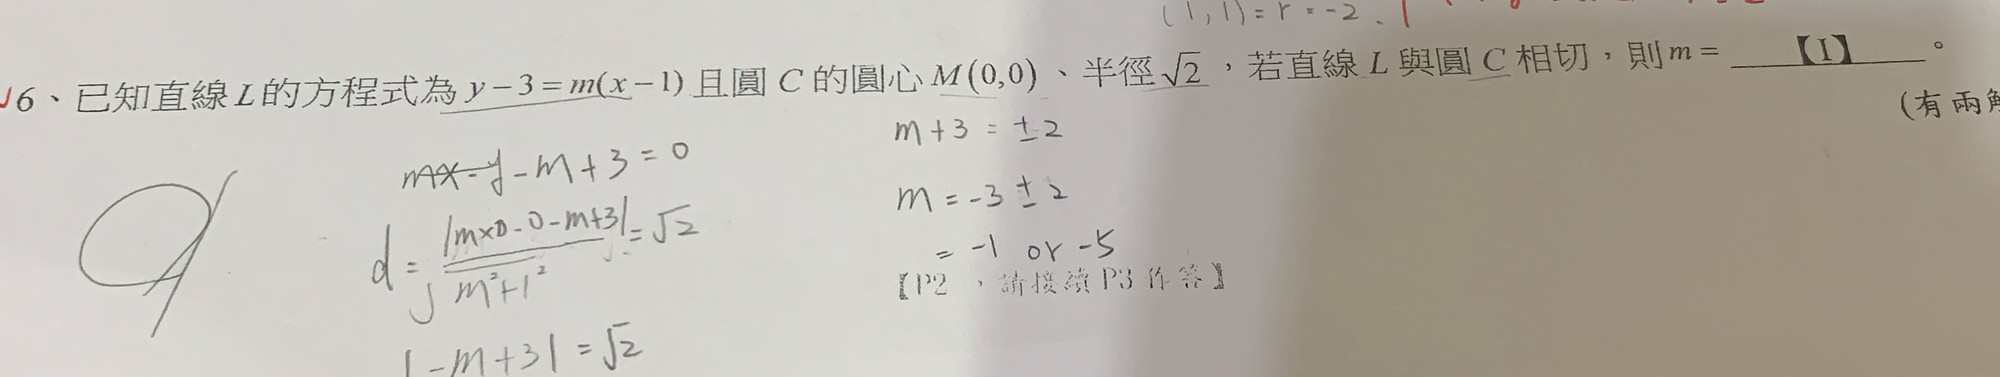 (1,1)=r=-2、
6、已知直線L的方程式為 y-3=m(x-1) 且圓 C 的圓心 M(0,0)、半徑√2，若直線 L 與圓 C 相切，則m= 【I】 。
(有兩解
mx-y-m+3=0
d=|m×0-0-m+3|/√m²+1²=√2
|-m+3|=√2
m+3=±2
m=-3±2
=-1 or -5
【P2，請接續P3作答】